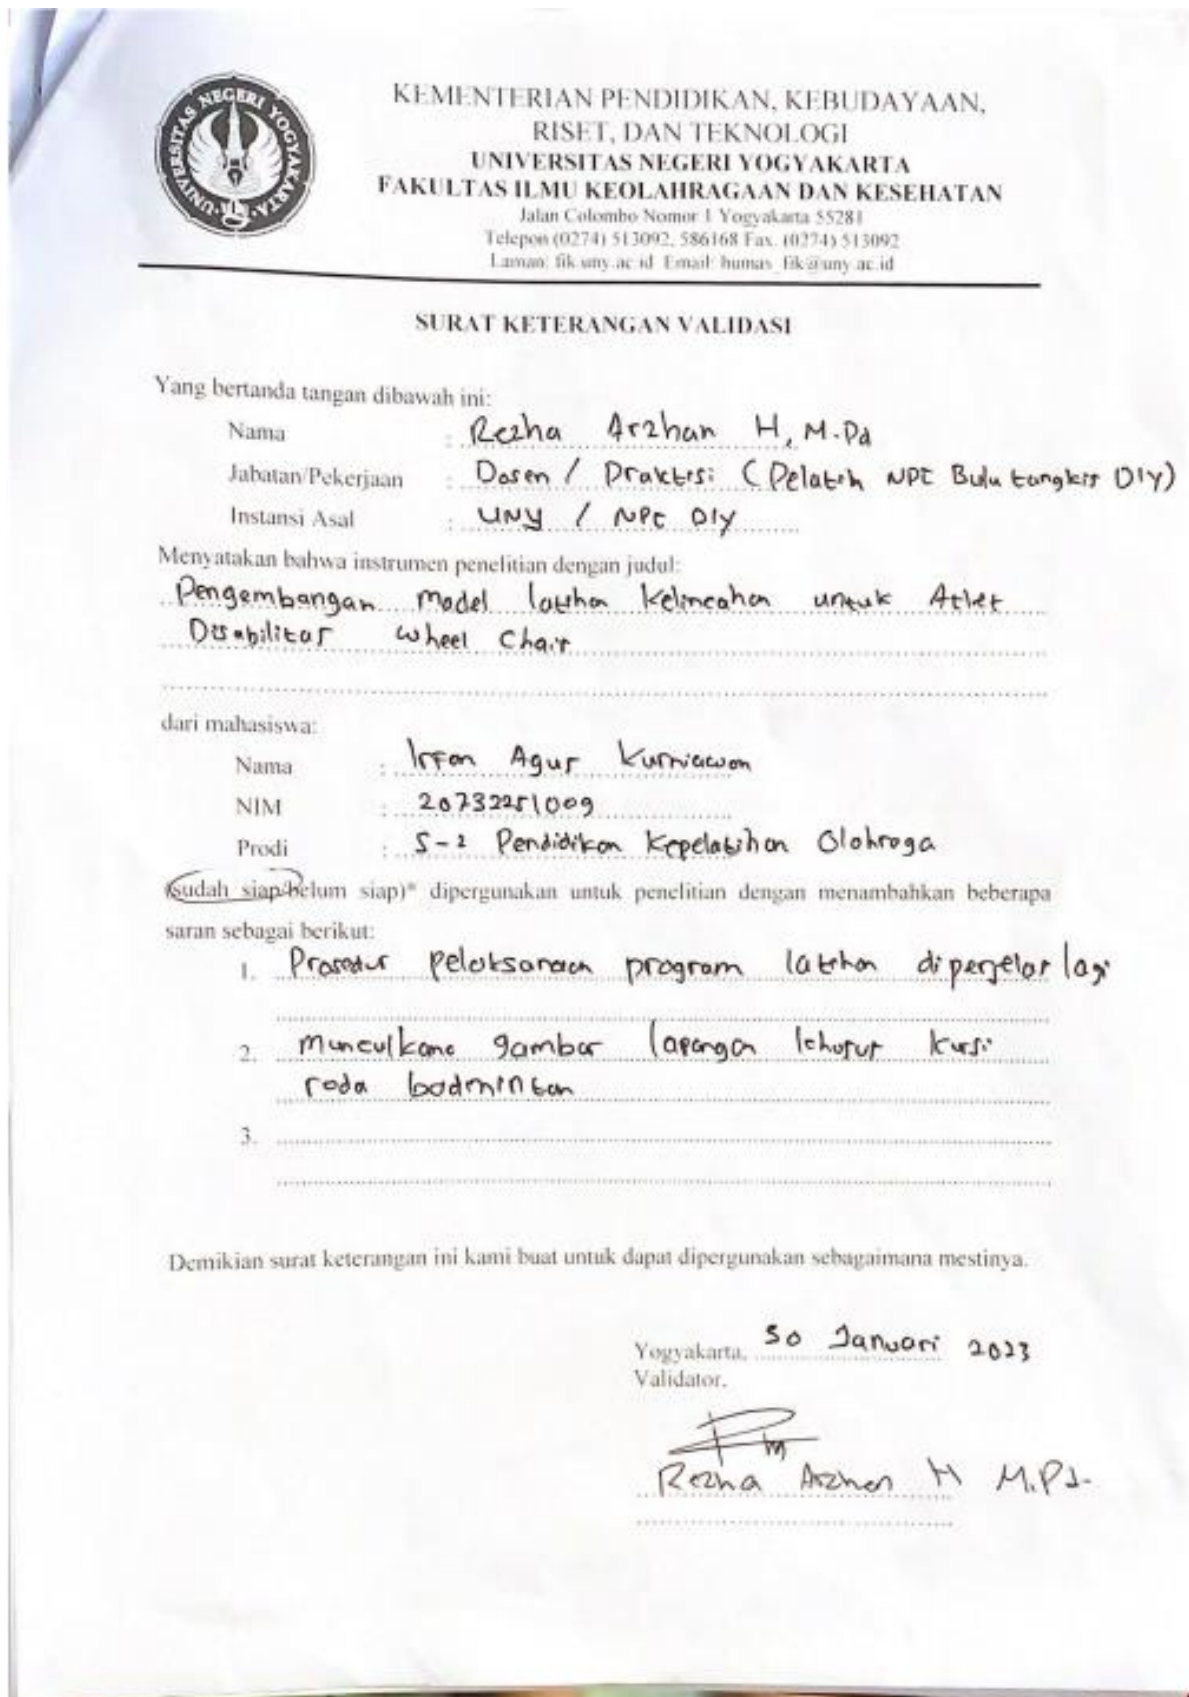 UNIVERSITAS NEGERI YOGYAKARTA
KEMENTERIAN PENDIDIKAN, KEBUDAYAAN,
RISET, DAN TEKNOLOGI
UNIVERSITAS NEGERI YOGYAKARTA
FAKULTAS ILMU KEOLAHRAGAAN DAN KESEHATAN
Jalan Colombo Nomor 1 Yogyakarta 55281
Telepon (0274) 513092, 586168 Fax. (0274) 513092
Laman: fik.uny.ac.id Email: humas_fik@uny.ac.id
SURAT KETERANGAN VALIDASI
Yang bertanda tangan dibawah ini:
Nama : Rezha Arzhan H, M.Pd
Jabatan/Pekerjaan : Dosen / Praktisi (Pelatih NPC Bulutangkis DIY)
Instansi Asal : UNY / NPC DIY
Menyatakan bahwa instrumen penelitian dengan judul:
Pengembangan Model latihan Kelincahan untuk Atlet
Disabilitas wheel Chair
dari mahasiswa:
Nama : Irfan Agus Kurniawan
NIM : 20732251009
Prodi : S-2 Pendidikan Kepelatihan Olahraga
(sudah siap/belum siap)* dipergunakan untuk penelitian dengan menambahkan beberapa
saran sebagai berikut:
1. Prosedur pelaksanaan program latihan diperjelas lagi
2. munculkan gambar lapangan khusus kursi
roda badminton
3.
Demikian surat keterangan ini kami buat untuk dapat dipergunakan sebagaimana mestinya.
Yogyakarta, 30 Januari 2023
Validator,
Rezha Arzhan H M.Pd.